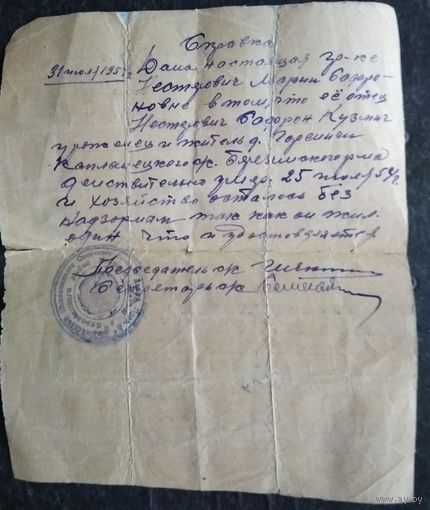 Справка
31 июля 195 г. Дана настоящая гр-ке
Нестерович Марии Софро-
новне в том, что её отец
Нестерович Софрон Кузьмич
уроженец и житель д.
Каплонецкого с/с Березинского р-на
действительно умер. 25 июля 54 г.
и хозяйство осталось без
надзориам так как он жил
один что и удостоверяется
Председатель с/с
Секретарь с/с
www.ay.by